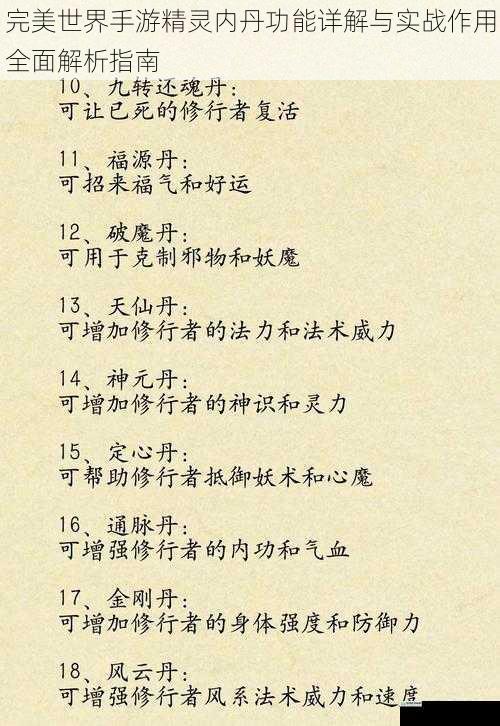 完美世界手游精灵内丹功能详解与实战作用
全面解析指南
10、九转还魂丹：
可让已死的修行者复活
11、福源丹：
可招来福气和好运
12、破魔丹：
可用于克制邪物和妖魔
13、天仙丹：
可增加修行者的法力和法术威力
14、神元丹：
可增加修行者的神识和灵力
15、定心丹：
可帮助修行者抵御妖术和心魔
16、通脉丹：
可增强修行者的内功和气血
17、金刚丹：
可增加修行者的身体强度和防御力
18、风云丹：
可增强修行者风系法术威力和速度